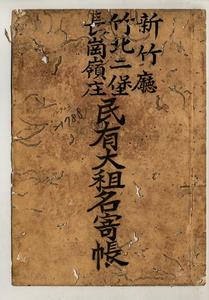 新竹廳
竹北二堡
長崗嶺庄
民有大租名寄帳
1788